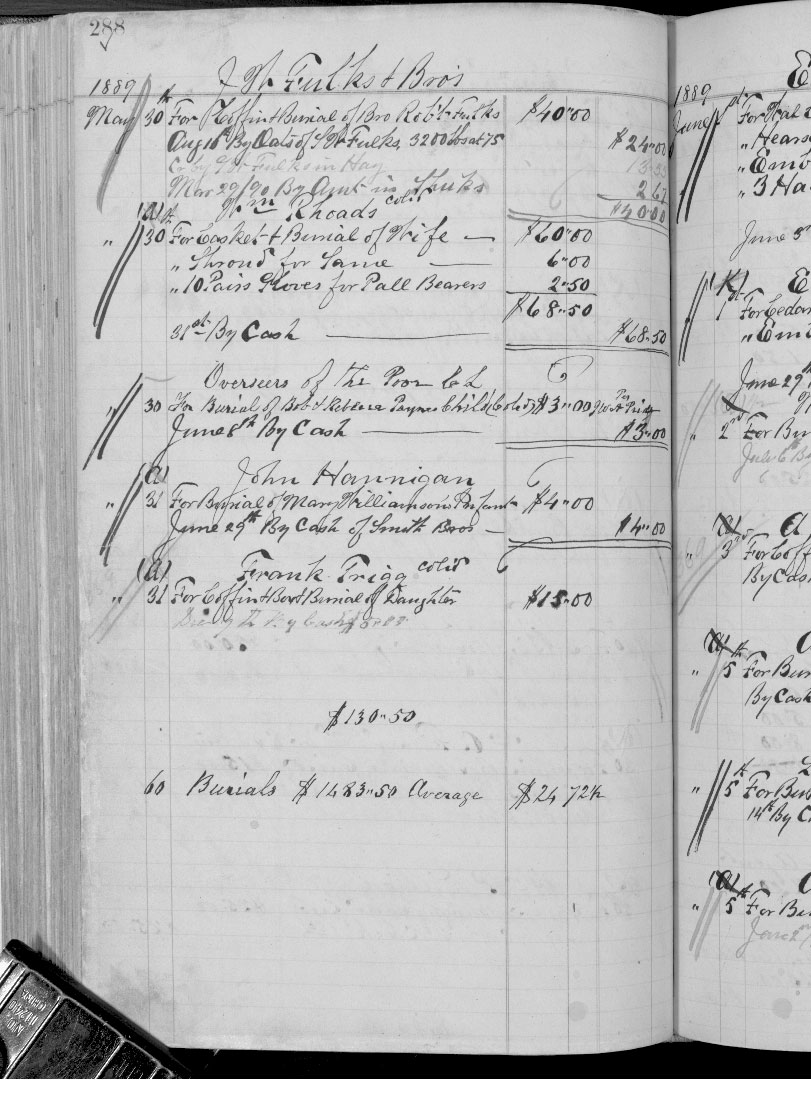 288
1889 J W Fulks & Bro's
May 30th For Coffin & Burial of Bro Rob't Fulks $40"00
Aug 16th By Oats of J W Fulks, 3200 lbs at 75 $24"00
Cr by J W Fulks in Hay 13.33
Mar 29/90 By Amt in 2.67
$40"00
(a) Wm Rhoads col'd
" 30th For Casket & Burial of Wife — $60"00
" Shroud for Same — 6"00
" 10 Pairs Gloves for Pall Bearers 2"50
$68"50
31st By Cash — $68"50
Overseers of the Poor
" 30 For Burial of Bob & Rebecca Paynes Child (Col'd) $3"00
June 8th By Cash — $3"00
(a) John Hannigan
" 31 For Burial of Mary Williamson's Infant $4"00
June 29th By Cash of Smith Bros — $4"00
(a) Frank Trigg col'd
" 31 For Coffin & Box & Burial of Daughter $15"00
By Cash
$130"50
60 Burials $1483"50 Average $24 72½
1889 E
June 1st For
" Hearse
" Emb
" 3 Ha
June 5
(K) E
1st For Cedar
" Em
June 29th
" 2nd For Bur
July 6th By
(a) a
" 3rd For Coff
By Cas
(a)
" 5th For Bur
By Cash
" 5th For Bur
14th By C
(a)
" 5th For Bu
June